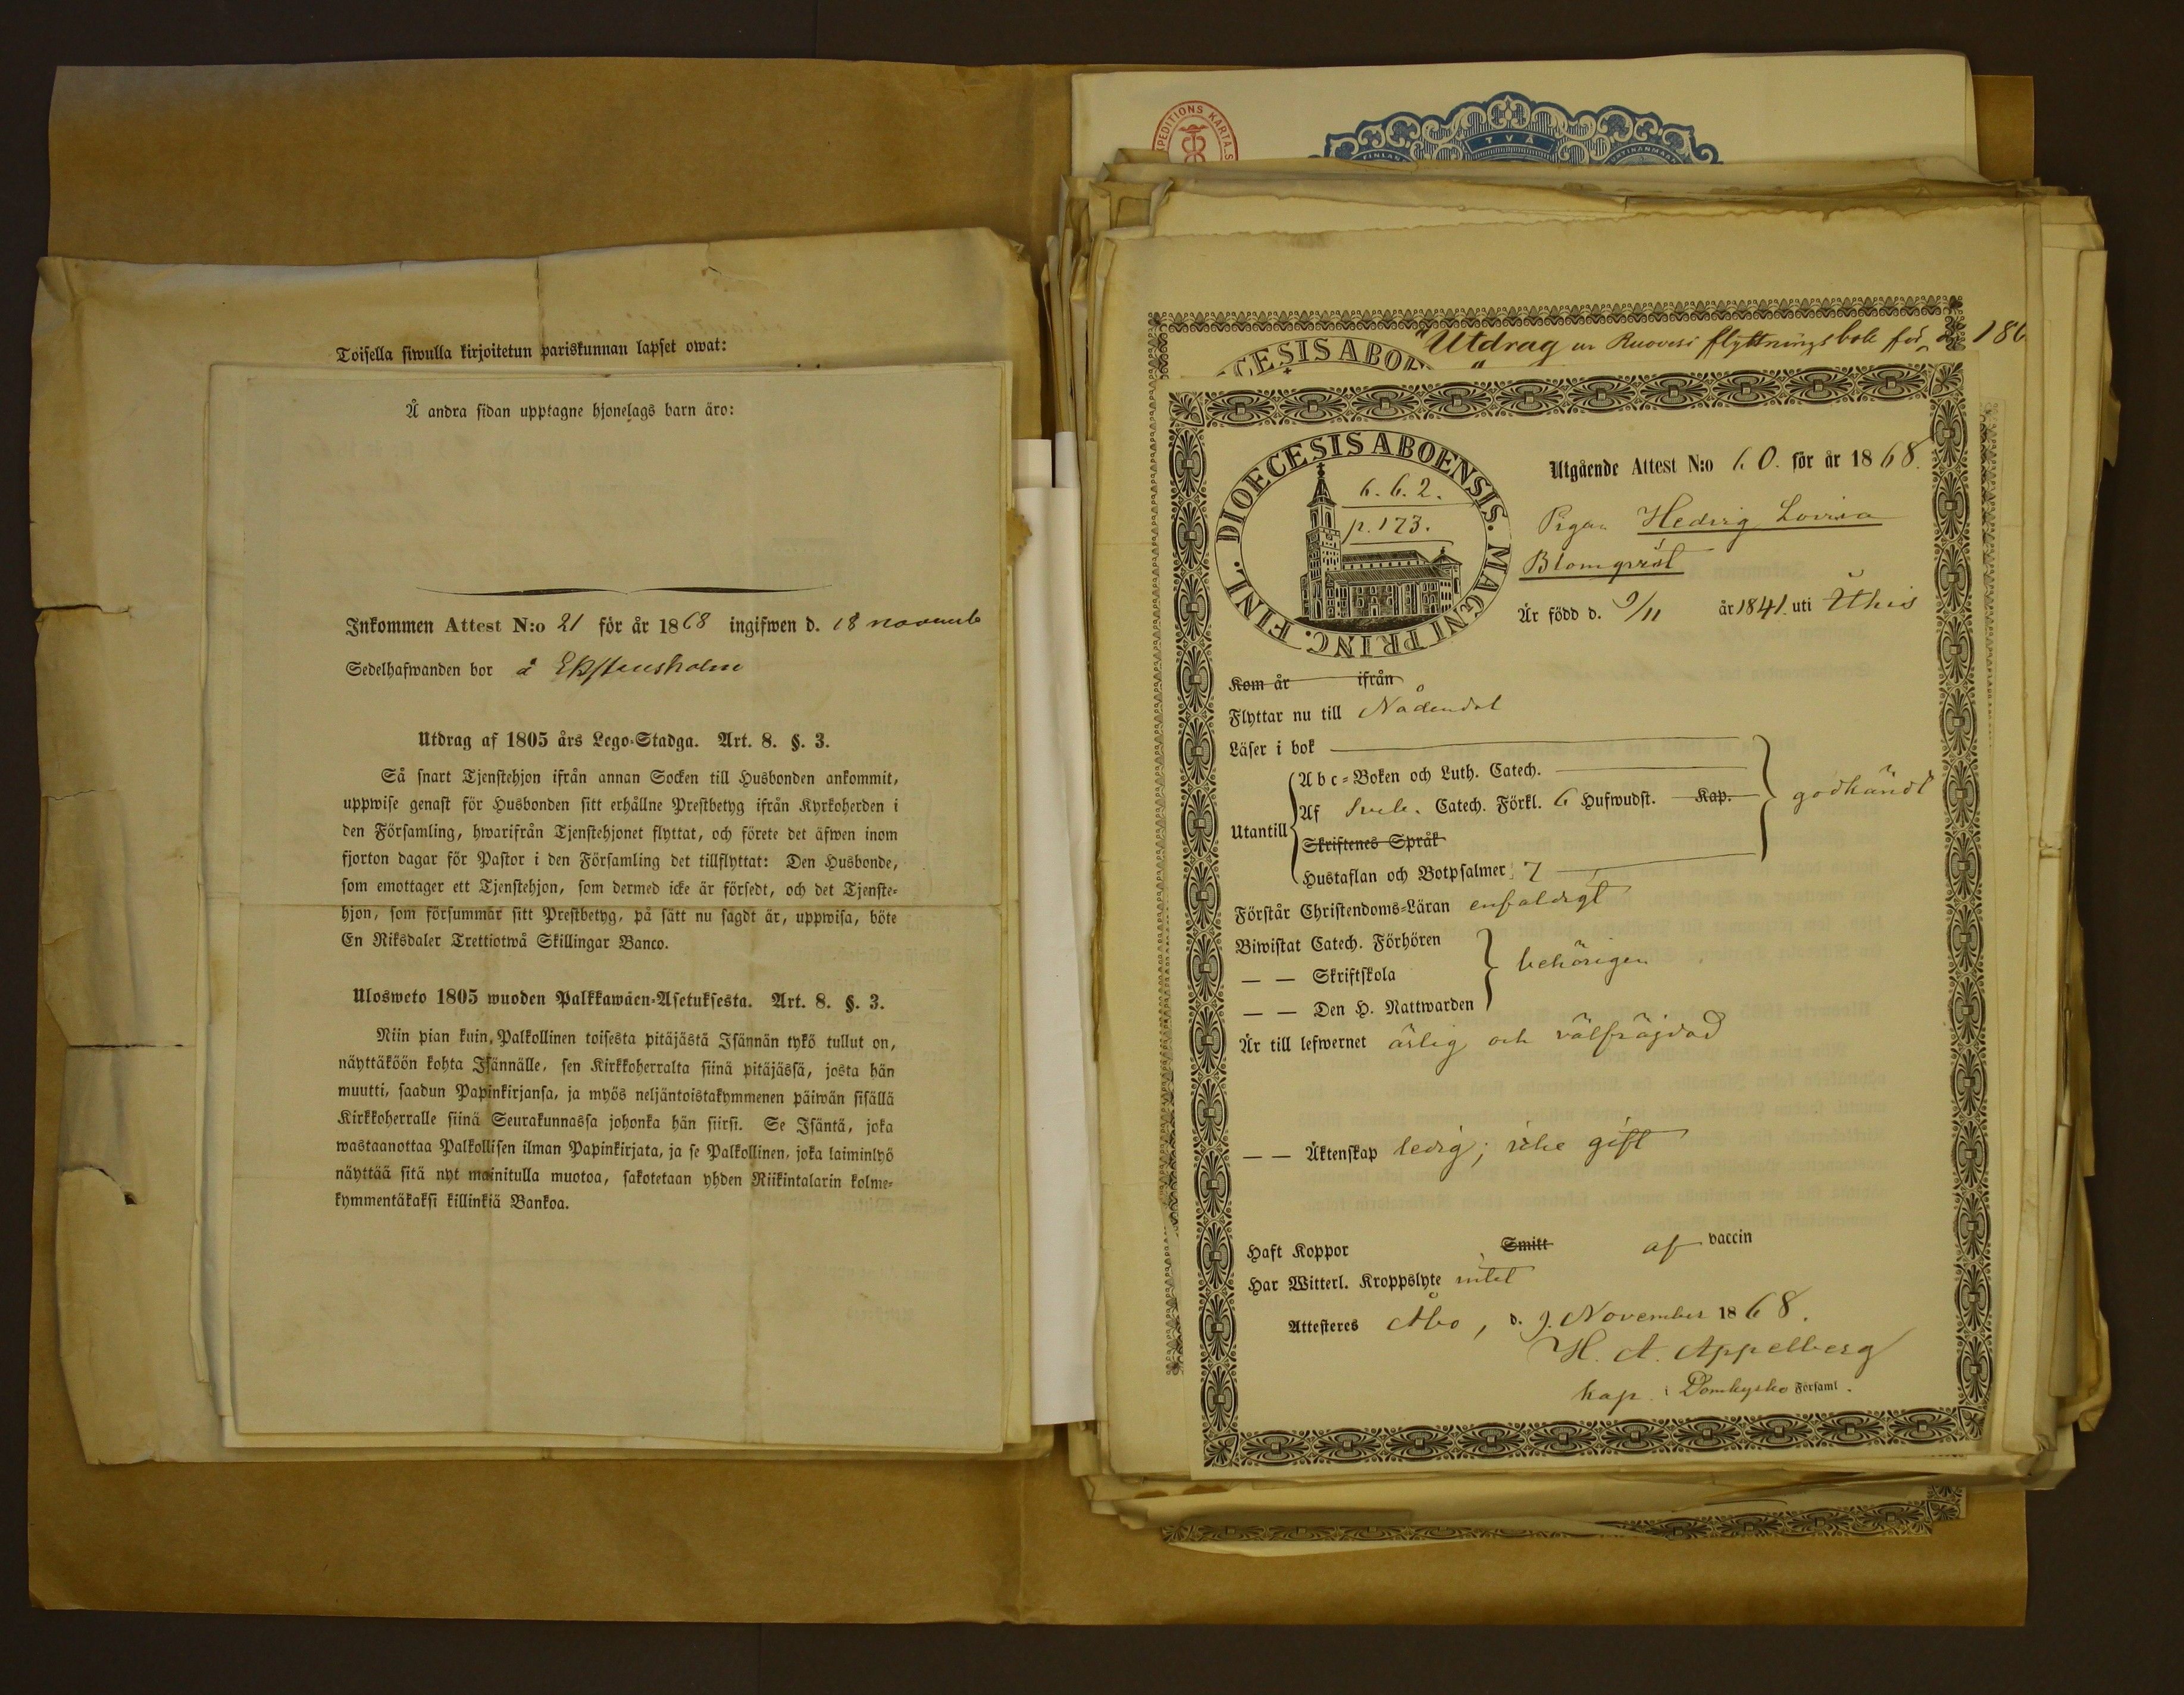 Toisella siwulla kirjoitetun pariskunnan lapset owat:
Å andra sidan upptagne hjonelags barn äro:
Inkommen Attest N:o 21 för år 1868 ingifwen d. 18 novemb
Sedelhafwanden bor å Ekstensholm
Utdrag af 1805 års Lego-Stadga. Art. 8. §. 3.
Så snart Tjenstehjon ifrån annan Socken till Husbonden ankommit,
uppwise genast för Husbonden sitt erhållne Prestbetyg ifrån Kyrkoherden i
den Församling, hwarifrån Tjenstehjonet flyttat, och förete det äfwen inom
fjorton dagar för Pastor i den Församling det tillflyttat: Den Husbonde,
som emottager ett Tjenstehjon, som dermed icke är försedt, och det Tjenste-
hjon, som försummar sitt Prestbetyg, på sätt nu sagdt är, uppwisa, böte
En Riksdaler Trettiotwå Skillingar Banco.
Ulosweto 1805 wuoden Palkkawäen-Asetuksesta. Art. 8. §. 3.
Niin pian kuin Palkollinen toisesta pitäjästä Isännän tykö tullut on,
näyttäköön kohta Isännälle, sen Kirkkoherralta siinä pitäjässä, josta hän
muutti, saadun Papinkirjansa, ja myös neljäntoistakymmenen päiwän sisällä
Kirkkoherralle siinä Seurakunnassa johonka hän siirsi. Se Isäntä, joka
wastaanottaa Palkollisen ilman Papinkirjata, ja se Palkollinen, joka laiminlyö
näyttää sitä nyt mainitulla muotoa, sakotetaan yhden Riikintalarin kolme-
kymmentäkaksi killinkiä Bankoa.
PEDITIONS KARTA S
TVÅ
FINLAN
Utdrag ur Ruovesi flyttningsbok för 186
CESIS ABOE
DIOECESIS ABOENSIS. MAGNI PRINC. FINL.
6. 6. 2.
p. 173.
Utgående Attest N:o 60. för år 1868.
Pigan Hedvig Lovisa
Blomqvist
Är född d. 9/11 år 1841. uti Ithis
Kom år ifrån
Flyttar nu till Nådendal
Läser i bok
Utantill
Abc-Boken och Luth. Catech.
Af Sveb. Catech. Förkl. 6 Hufwudst. Kap.
godkändt
Skriftenes Språk
Hustaflan och Botpsalmer 7
Förstår Christendoms-Läran enfaldigt
Biwistat Catech. Förhören
— — Skriftskola
behörigen
— — Den H. Nattwarden
Är till lefwernet ärlig och välfräjdad
— — Äktenskap ledig; icke gift
Haft Koppor Smitt af vaccin
Har Witterl. Kroppslyte intet
Attesteres Åbo, d. 9. November 1868.
H. A. Appelberg
kap. i Domkyrko Församl.